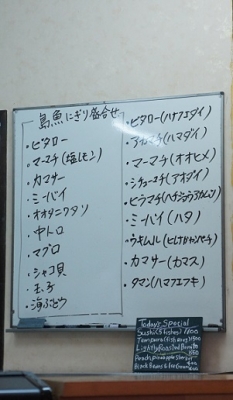 島魚にぎり盛合せ
・ビタロー
・マーマチ(塩レモン)
・カマサー
・ミーバイ
・オオタニワタリ
・中トロ
・マグロ
・シャコ貝
・玉子
・海ぶどう
・ビタロー(ハナフエダイ)
・アカマチ(ハマダイ)
・マーマチ(オオヒメ)
・シチューマチ(アオダイ)
・ヒラマチ
・ミーバイ(ハタ)
・ウキムル
・カマサー(カマス)
・タマン(ハマフエフキ)
Today's Special
Sushi(5 fishes)
Tempura
Lightly Roasted Bonito
Black Beans & Ice Cream